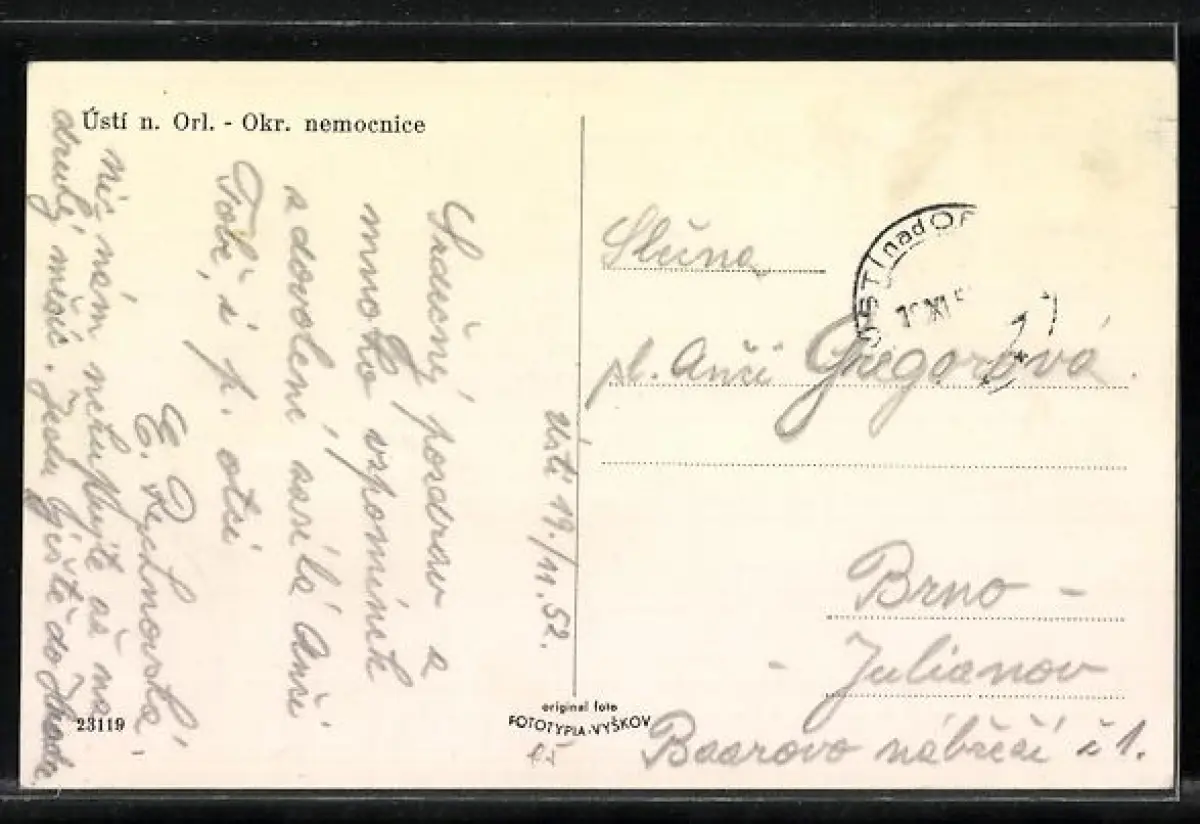 Ústí n. Orl. - Okr. nemocnice
Ústí 19./11.52.
Srdečný pozdrav a
mnoho vzpomínek
z dovolené zasílá Anči
Tobě, i p. otci
E. Rychnovská,
nic nám nekupujte až na
druhý měsíc. Jedu ještě do
23119
original foto
FOTOTYPIA-VYŠKOV
Slečna
pl. Anči Gregorová
Brno -
- Julianov
Baarovo nábřeží č 1.
ÚSTÍ nad OR
XI